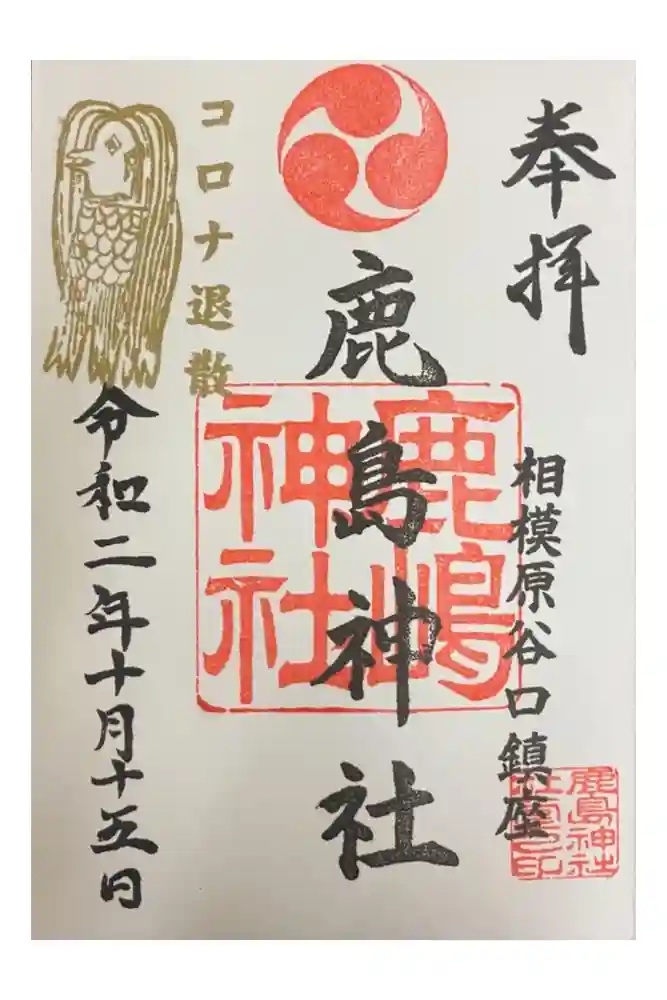 奉拝
相模原谷口鎮座
鹿島神社
鹿嶋神社
コロナ退散
令和二年十月十五日
鹿島神社